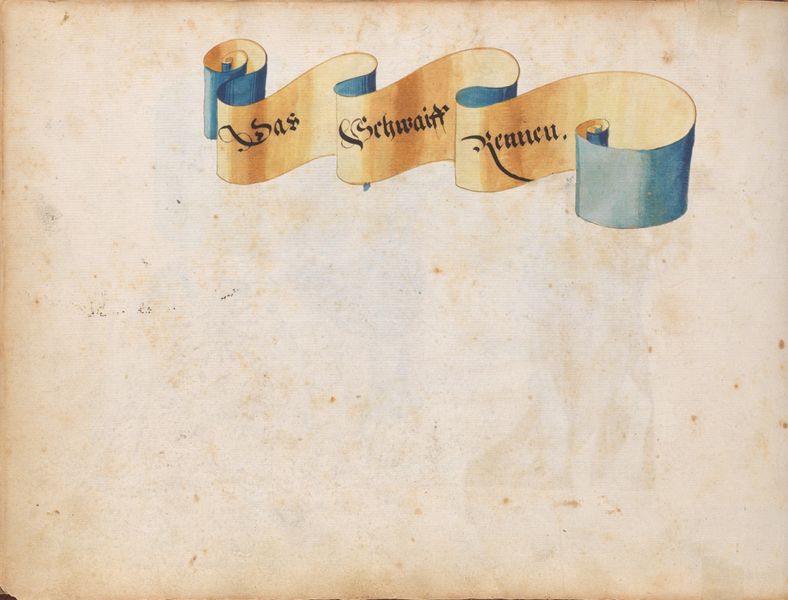 Das Schwaiff Rennen.